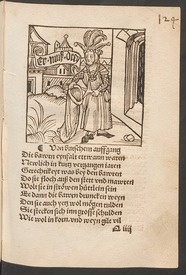 129
Von beurschem auffgang
Die bawrn eynfalt ettwann waren
Newlich in kurtz vergangen iaren
Gerechtikeyt was bey den bawren
Do sie floch auß den stett vnd mawren
Wolt sie in ströwen hüttlein sein
Ee dann die bawren druncken weyn
Den sie auch yetz wol mögen tulden
Sie stecken sich inn grosse schulden
Wie wol in korn vnd weyn gilt vil